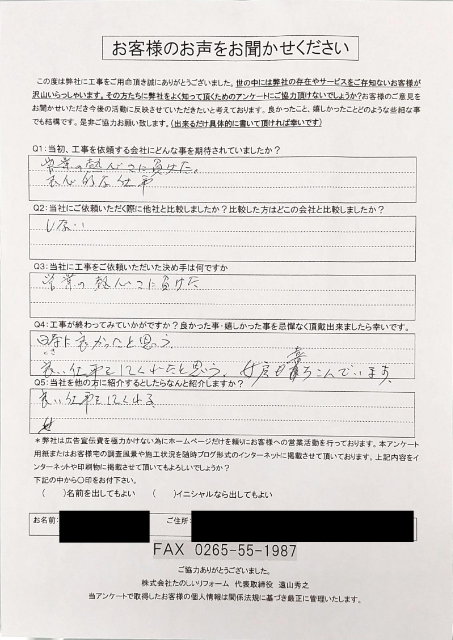 お客様のお声をお聞かせください
この度は弊社に工事をご用命頂き誠にありがとうございました。世の中には弊社の存在やサービスをご存知ないお客様が
沢山いらっしゃいます。その方たちに弊社をよく知って頂くためのアンケートにご協力頂けないでしょうか?お客様のご意見を
お聞かせいただき今後の活動に反映させていただきたいと考えております。良かったこと、嬉しかったことどのような些細な事
でも結構です。是非ご協力お願い致します。(出来るだけ具体的に書いて頂ければ幸いです)
Q1:当初、工事を依頼する会社にどんな事を期待されていましたか?
営業の熱心さに負けた。
良心的な仕事
Q2:当社にご依頼いただく際に他社と比較しましたか?比較した方はどこの会社と比較しましたか?
しない
Q3:当社に工事をご依頼いただいた決め手は何ですか
営業の熱心さに負けた
Q4:工事が終わってみていかがですか?良かった事・嬉しかった事を忌憚なく頂戴出来ましたら幸いです。
に良かったと思う
良い仕事をしてくれたと思う。女房も喜こんでいます。
Q5:当社を他の方に紹介するとしたらなんと紹介しますか?
良い仕事をしてくれる
*弊社は広告宣伝費を極力かけない為にホームページだけを頼りにお客様への営業活動を行っております。本アンケート
用紙またはお客様宅の調査風景や施工状況を随時ブログ形式のインターネットに掲載させて頂いております。上記内容をイ
ンターネットや印刷物に掲載させて頂いてもよろしいでしょうか?
下記の中から〇印をお付下さい。
( )名前を出してもよい ( )イニシャルなら出してもよい
お名前: ご住所:
FAX 0265-55-1987
ご協力ありがとうございました。
株式会社たのしいリフォーム 代表取締役 遠山秀之
当アンケートで取得したお客様の個人情報は関係法規に基づき厳正に管理いたします。